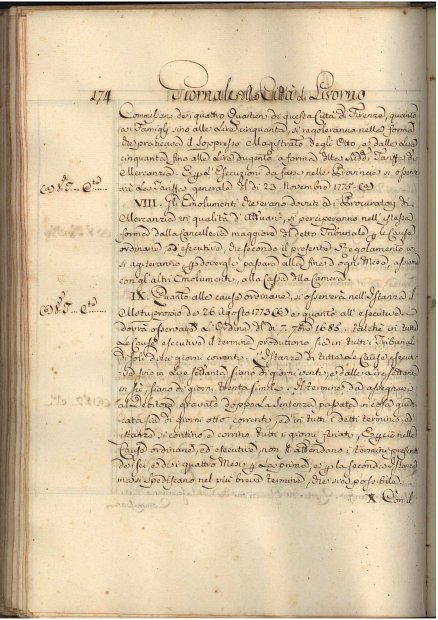 174 Giornale della Città di Livorno
Comulsare dei quattro Quartieri di questa Città di Firenze, quanto
ai Famigli sino alle Lire cinquanta, si regoleranno nella forma
che praticava il soppresso Magistrato degli Otto, e dalle Lire
cinquanta fino alle Lire dugento a forma delle Tariffe di
Mercanzia. E per l'Esecuzioni da farsi nelle Provincie si osser-
verà la Tariffa generale del dì 23. Novembre 177
VIII. Gli Emolumenti che erano dovuti ai Procuratori di
Mercanzia in qualità d'Attuari, si perciperanno nell'istessa
forma dalla Cancelleria maggiore di detto Tribunale per le Cause
ordinarie, ed esecutive, che secondo il presente Regolamento vi
si agiteranno, per doversi passare alla fine d'ogni Mese, assieme
con gli altri Emolumenti, alla Cassa della Camera.
IX. Quanto alle cause ordinarie, si osserverà nell'Istanza il
Motuproprio de 26 Agosto 1773 (a) e quanto all'esecutive si
dovrà osservare l'Ordine del dì 7. 1683. talchè in tutte
le Cause esecutive il termine produttorio sia in tutti i Tribunali
di soli dieci giorni correnti. L'Istanza di tutte le Cause esecuti-
ve sino in Lire settanta siano di giorni venti, e dalle Lire settanta
in su, siano di giorni trenta simili. Il termine da assegnarsi
al Debitore gravato doppo la Sentenza passata in cosa giudi-
cata sia di giorni otto correnti, ed in tutti i detti termini ed
istanze si contino e corrino tutti i giorni feriati, e
Cause ordinarie, ed esecutive, non si attendano i termini
dei sei, e dei quattro Mesi per le prime, e per le seconde,
ma si spediscano nel più breve termine, che sia possibile.
X Con il